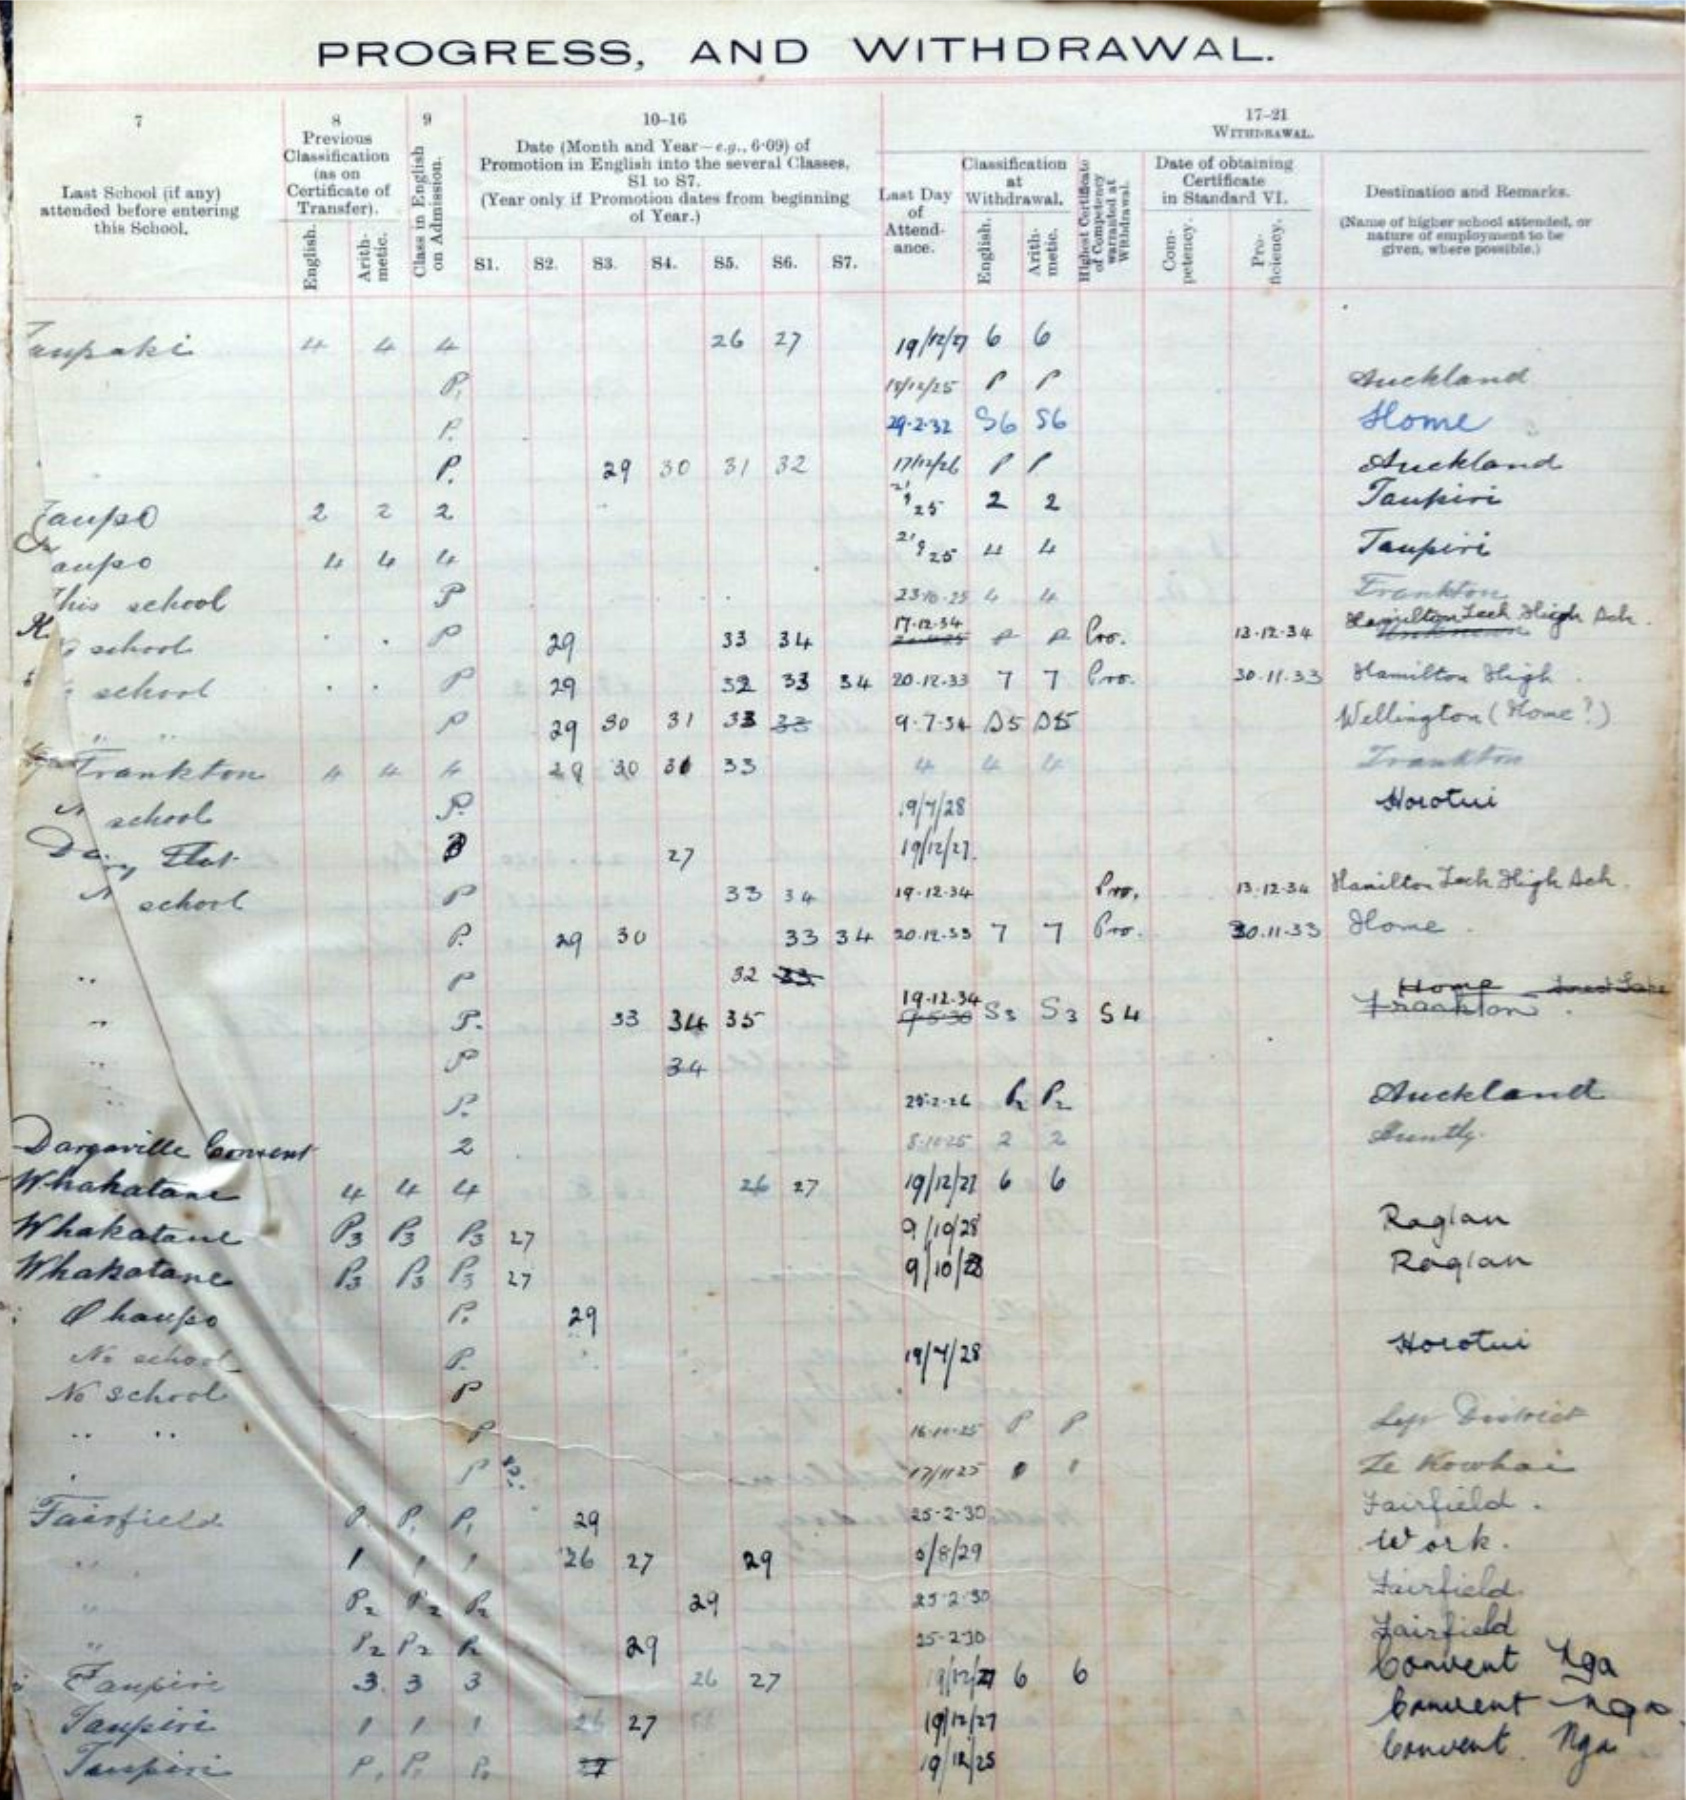 PROGRESS, AND WITHDRAWAL.
7 8 9 10–16 17–21
Last School (if any) attended before entering this School.
Previous Classification (as on Certificate of Transfer).
English. Arith-metic.
Class in English on Admission.
Date (Month and Year—e.g., 6·09) of Promotion in English into the several Classes, S1 to S7.
(Year only if Promotion dates from beginning of Year.)
S1. S2. S3. S4. S5. S6. S7.
WITHDRAWAL.
Last Day of Attend-ance.
Classification at Withdrawal.
English. Arith-metic.
Highest Certificate of Competency warranted at Withdrawal.
Date of obtaining Certificate in Standard VI.
Com-petency. Pro-ficiency.
Destination and Remarks.
(Name of higher school attended, or nature of employment to be given, where possible.)
4 4 4 26 27 19/12/27 6 6
P. 18/12/25 P P Auckland
P. 29·2·32 S6 S6 Home
P. 29 30 31 32 17/12/26 P P Auckland
Taupo 2 2 2 25 2 2 Taupiri
aupo 4 4 4 21/9 25 4 4 Taupiri
This school P 23·10·25 4 4 Frankton
school P 29 33 34 17·12·34 P P Pro. 13·12·34 Hamilton Tech High Sch.
school P 29 32 33 34 20·12·33 7 7 Pro. 30·11·33 Hamilton High
" " P 29 30 31 33 33 9·7·34 S5 S5 Wellington (Home?)
Frankton 4 4 4 29 30 31 33 4 4 4 Frankton
school P. 19/7/28 Horotui
Flat P 27 19/12/27.
school P 33 34 19·12·34 Pro. 13·12·34 Hamilton Tech High Sch.
P. 29 30 33 34 20·12·33 7 7 Pro. 30·11·33 Home
" P 32 33 Home
" P. 33 34 35 19·12·34 S3 S3 S4 Frankton
" P 34
" P. 25·2·26 P2 P2 Auckland
Dargaville Convent 2 8·10·25 2 2 Huntly
Whakatane 4 4 4 26 27 19/12/27 6 6
Whakatane P3 P3 P3 27 9/10/28 Raglan
Whakatane P3 P3 P3 27 9/10/28 Raglan
Ohaupo P. 29
No school P. 19/7/28 Horotui
No school P
" " P 16·10·25 P P Left District
P 17/11/25 Te Kowhai
Fairfield P. P. P. 29 25·2·30 Fairfield.
" 1 1 1 26 27 29 5/8/29 Work.
" P2 P2 P2 29 25·2·30 Fairfield
" P2 P2 P2 29 25·2·30 Fairfield
Taupiri 3 3 3 26 27 19/12/27 6 6 Convent Nga
Taupiri 1 1 1 26 27 19/12/27 Convent Nga
Taupiri P. P. P. 27 19/12/25 Convent. Nga